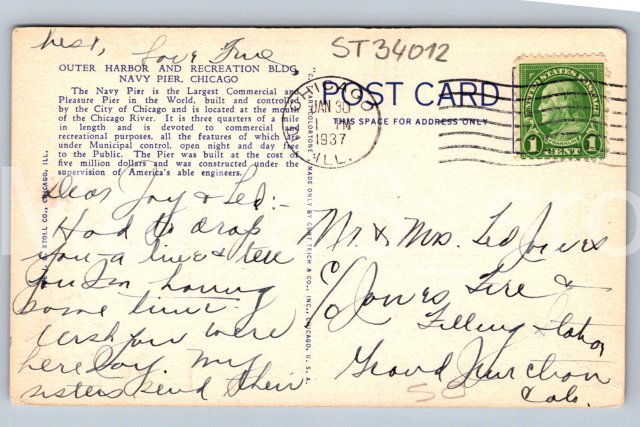 best, Love June
ST34012
OUTER HARBOR AND RECREATION BLDG.
NAVY PIER, CHICAGO
The Navy Pier is the Largest Commercial and
Pleasure Pier in the World, built and controlled
by the City of Chicago and is located at the mouth
of the Chicago River. It is three quarters of a mile
in length and is devoted to commercial and
recreational purposes, all the features of which are
under Municipal control, open night and day free
to the Public. The Pier was built at the cost of
five million dollars and was constructed under the
supervision of America's able engineers.
Dear Joy & Ted:-
Had to drop
you a line & tell
you I'm having
some time.
Wish you were
here Joy. My
sisters send their
POST CARD
THIS SPACE FOR ADDRESS ONLY
CHICAGO
JAN 30
PM
1937
ILL.
UNITED STATES POSTAGE
FRANKLIN
1 CENT 1
Mr. & Mrs. Ted Jones
c/o Jones Tire &
Filling Station
Grand Junction
Colo.
50
STOLL CO., CHICAGO, ILL.
MADE ONLY BY CURT TEICH & CO., INC., CHICAGO, U.S.A.